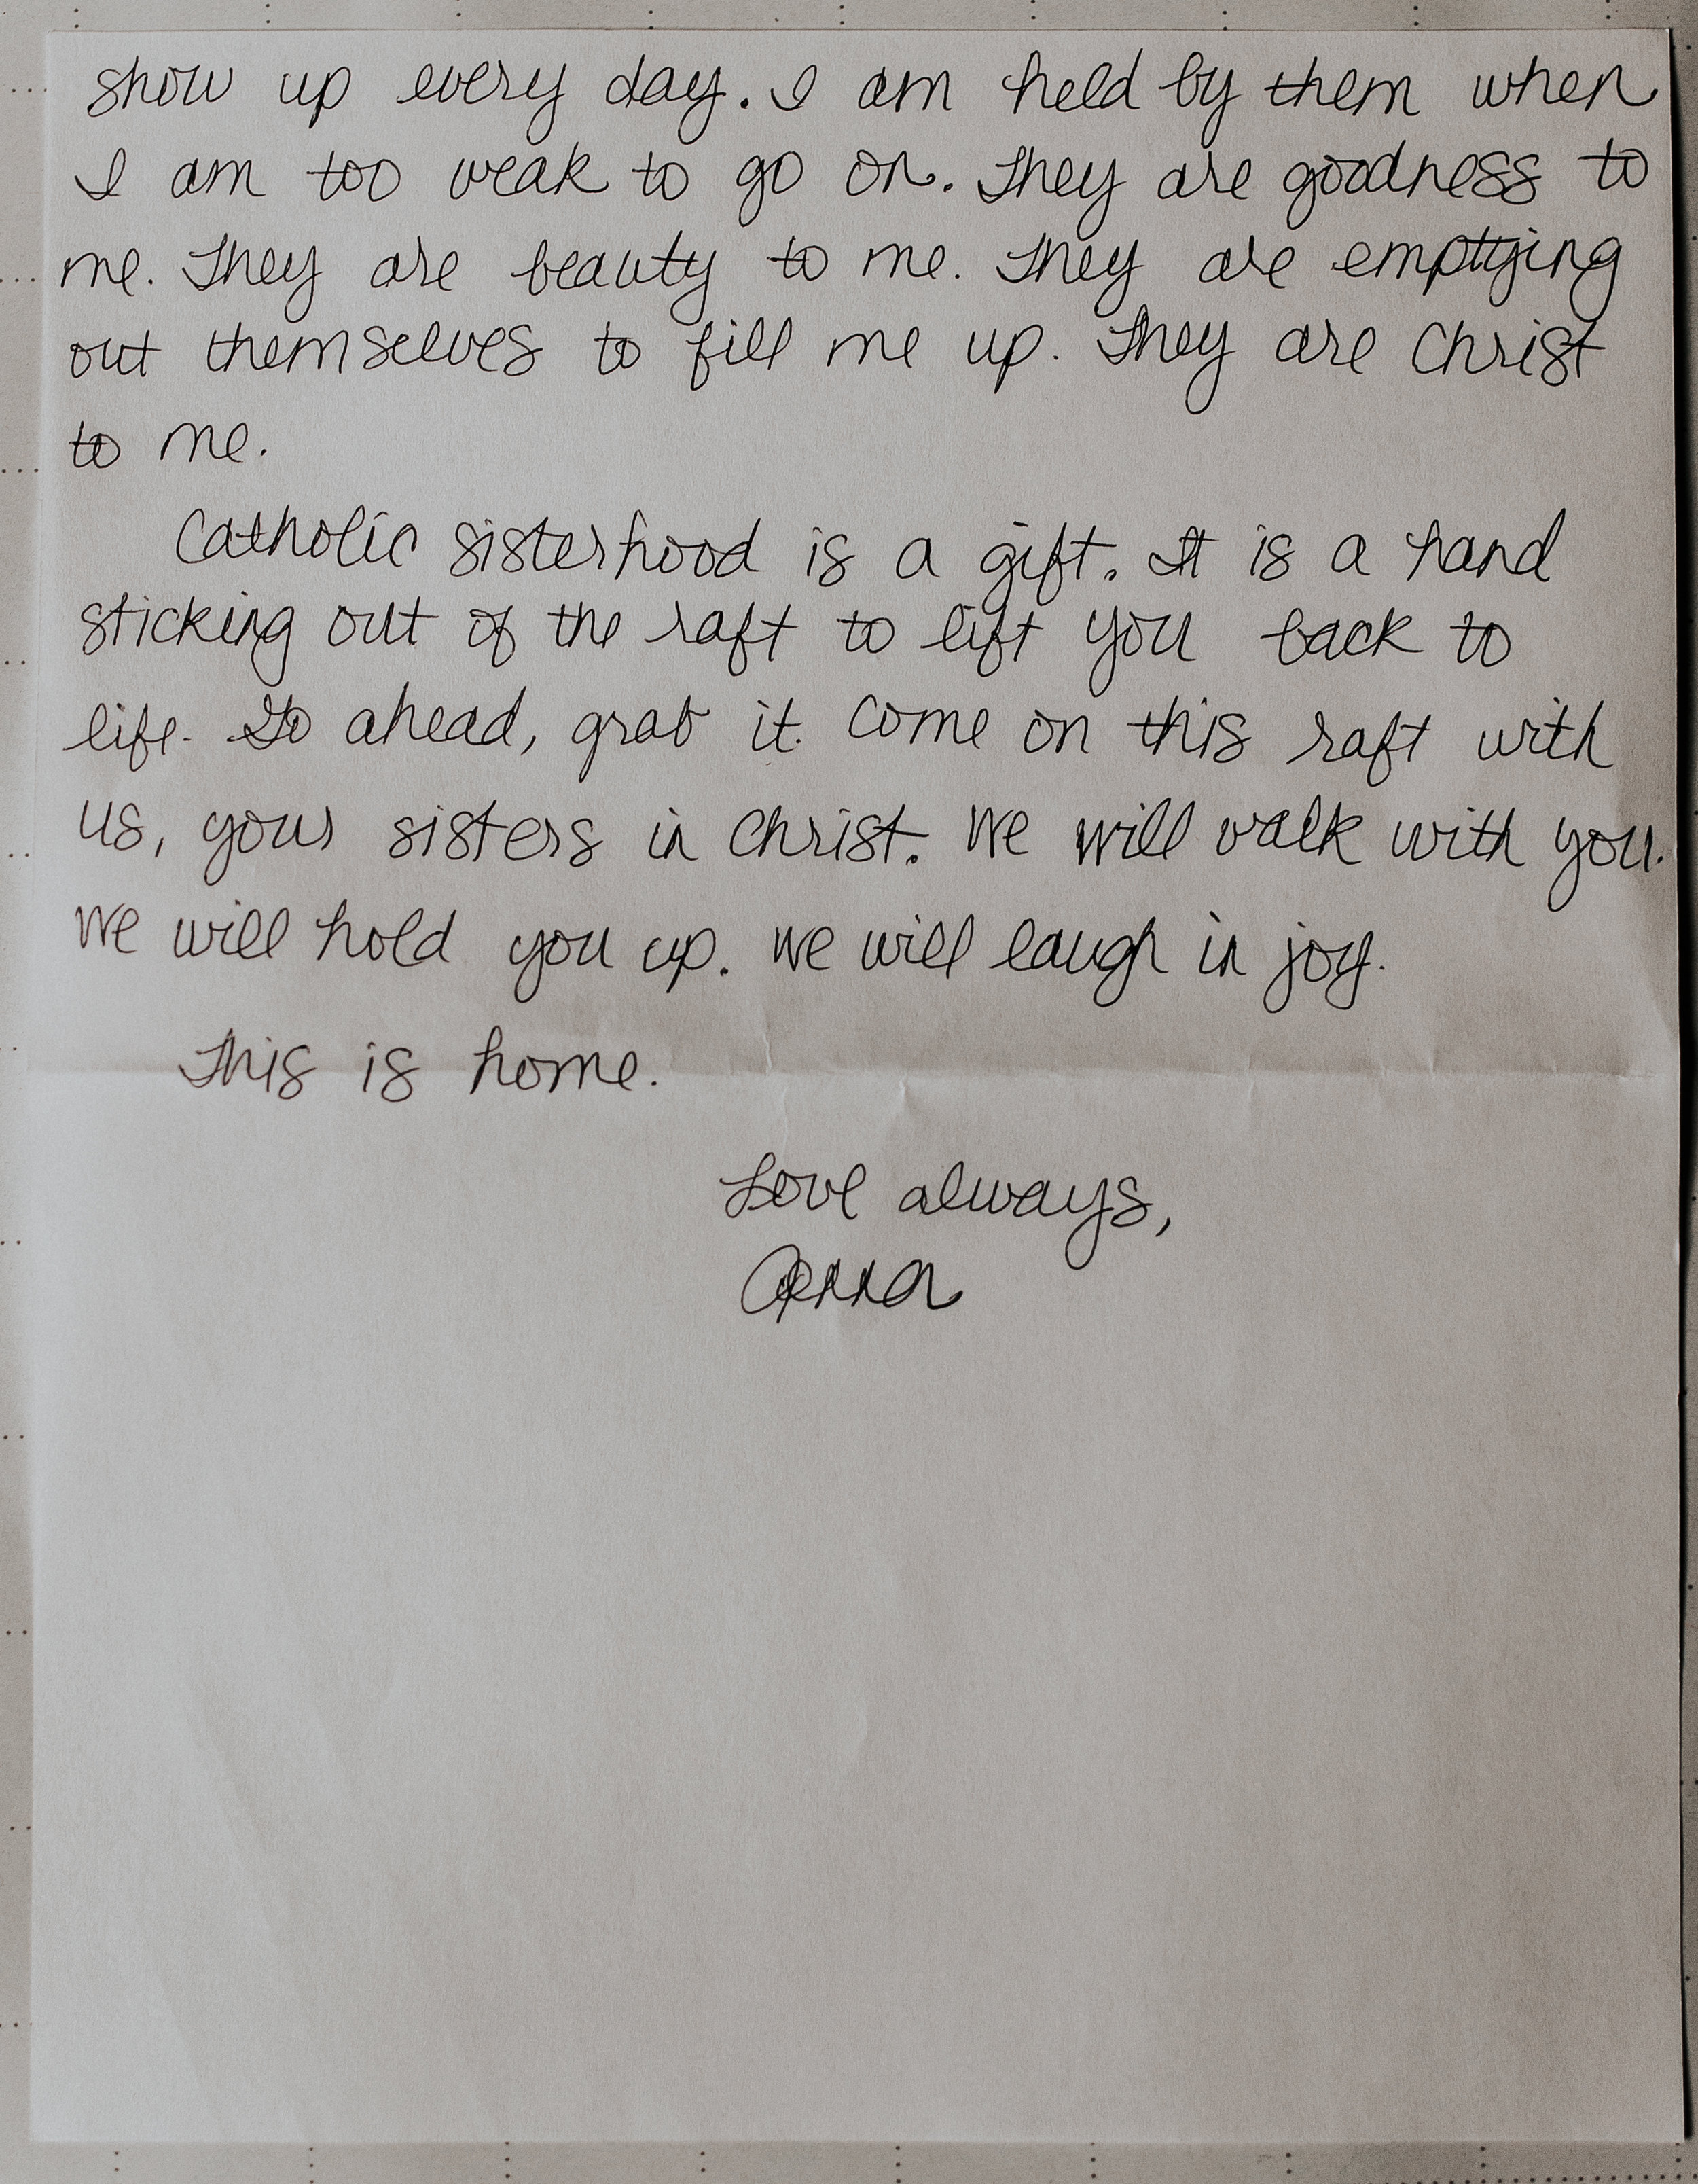 show up every day. I am held by them when
I am too weak to go on. They are goodness to
me. They are beauty to me. They are emptying
out themselves to fill me up. They are Christ
to me.
Catholic sisterhood is a gift. It is a hand
sticking out of the raft to lift you back to
life. Go ahead, grab it. Come on this raft with
us, your sisters in Christ. We will walk with you.
We will hold you up. We will laugh in joy.
This is home.
Love always,
Anna